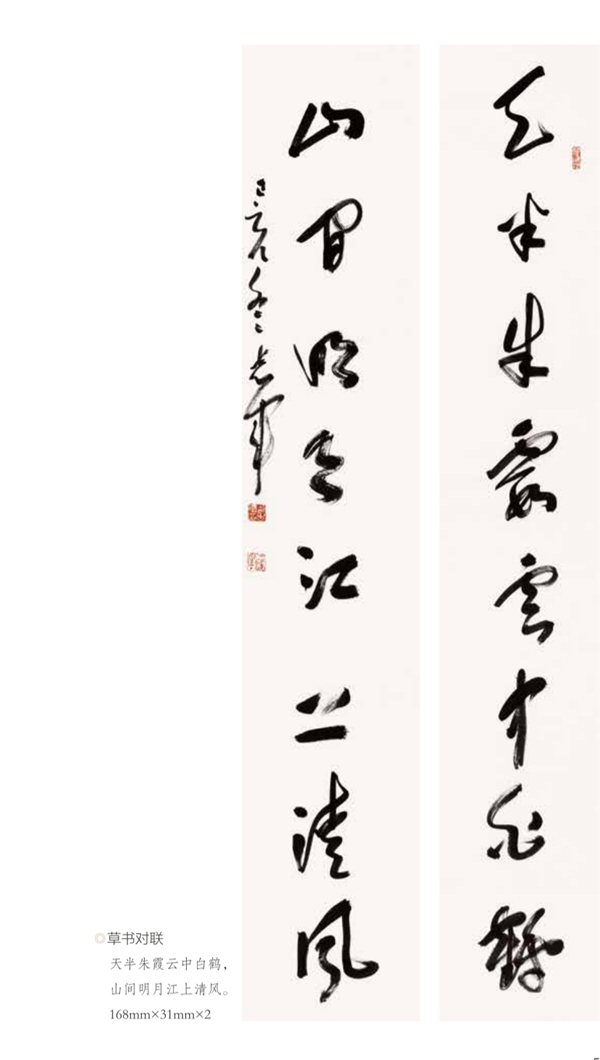 天半朱霞雲中白鶴
山間明月江上清風
草书对联
天半朱霞云中白鹤，
山间明月江上清风。
168mm×31mm×2